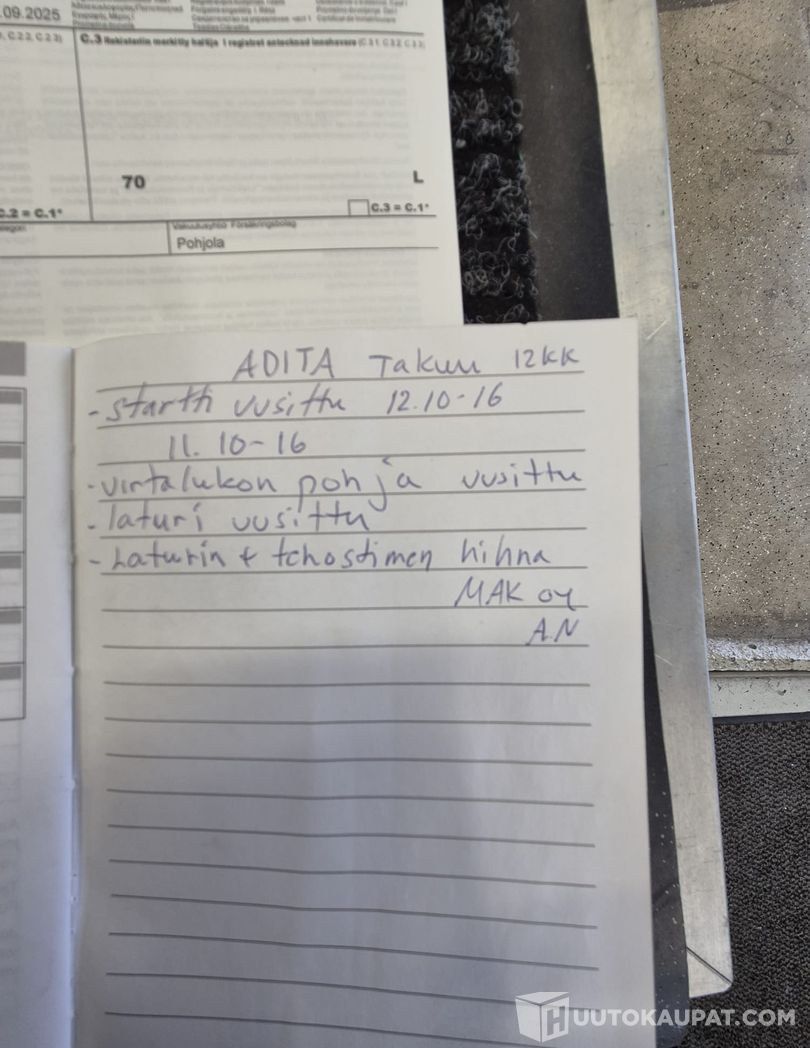 .09.2025
C.3 Rekisteriin merkitty haltija I registret antecknad innehavare (C.3.1, C.3.2, C.3.3)
70 L
C.2 = C.1* C.3 = C.1*
Vakuutusyhtiö Försäkringsbolag
Pohjola
ADITA Takuu 12kk
- startti uusittu 12.10-16
11. 10-16
- virtalukon pohja uusittu
- laturi uusittu
- Laturin + tehostimen hihna
MAK oy
A.N
HUUTOKAUPAT.COM